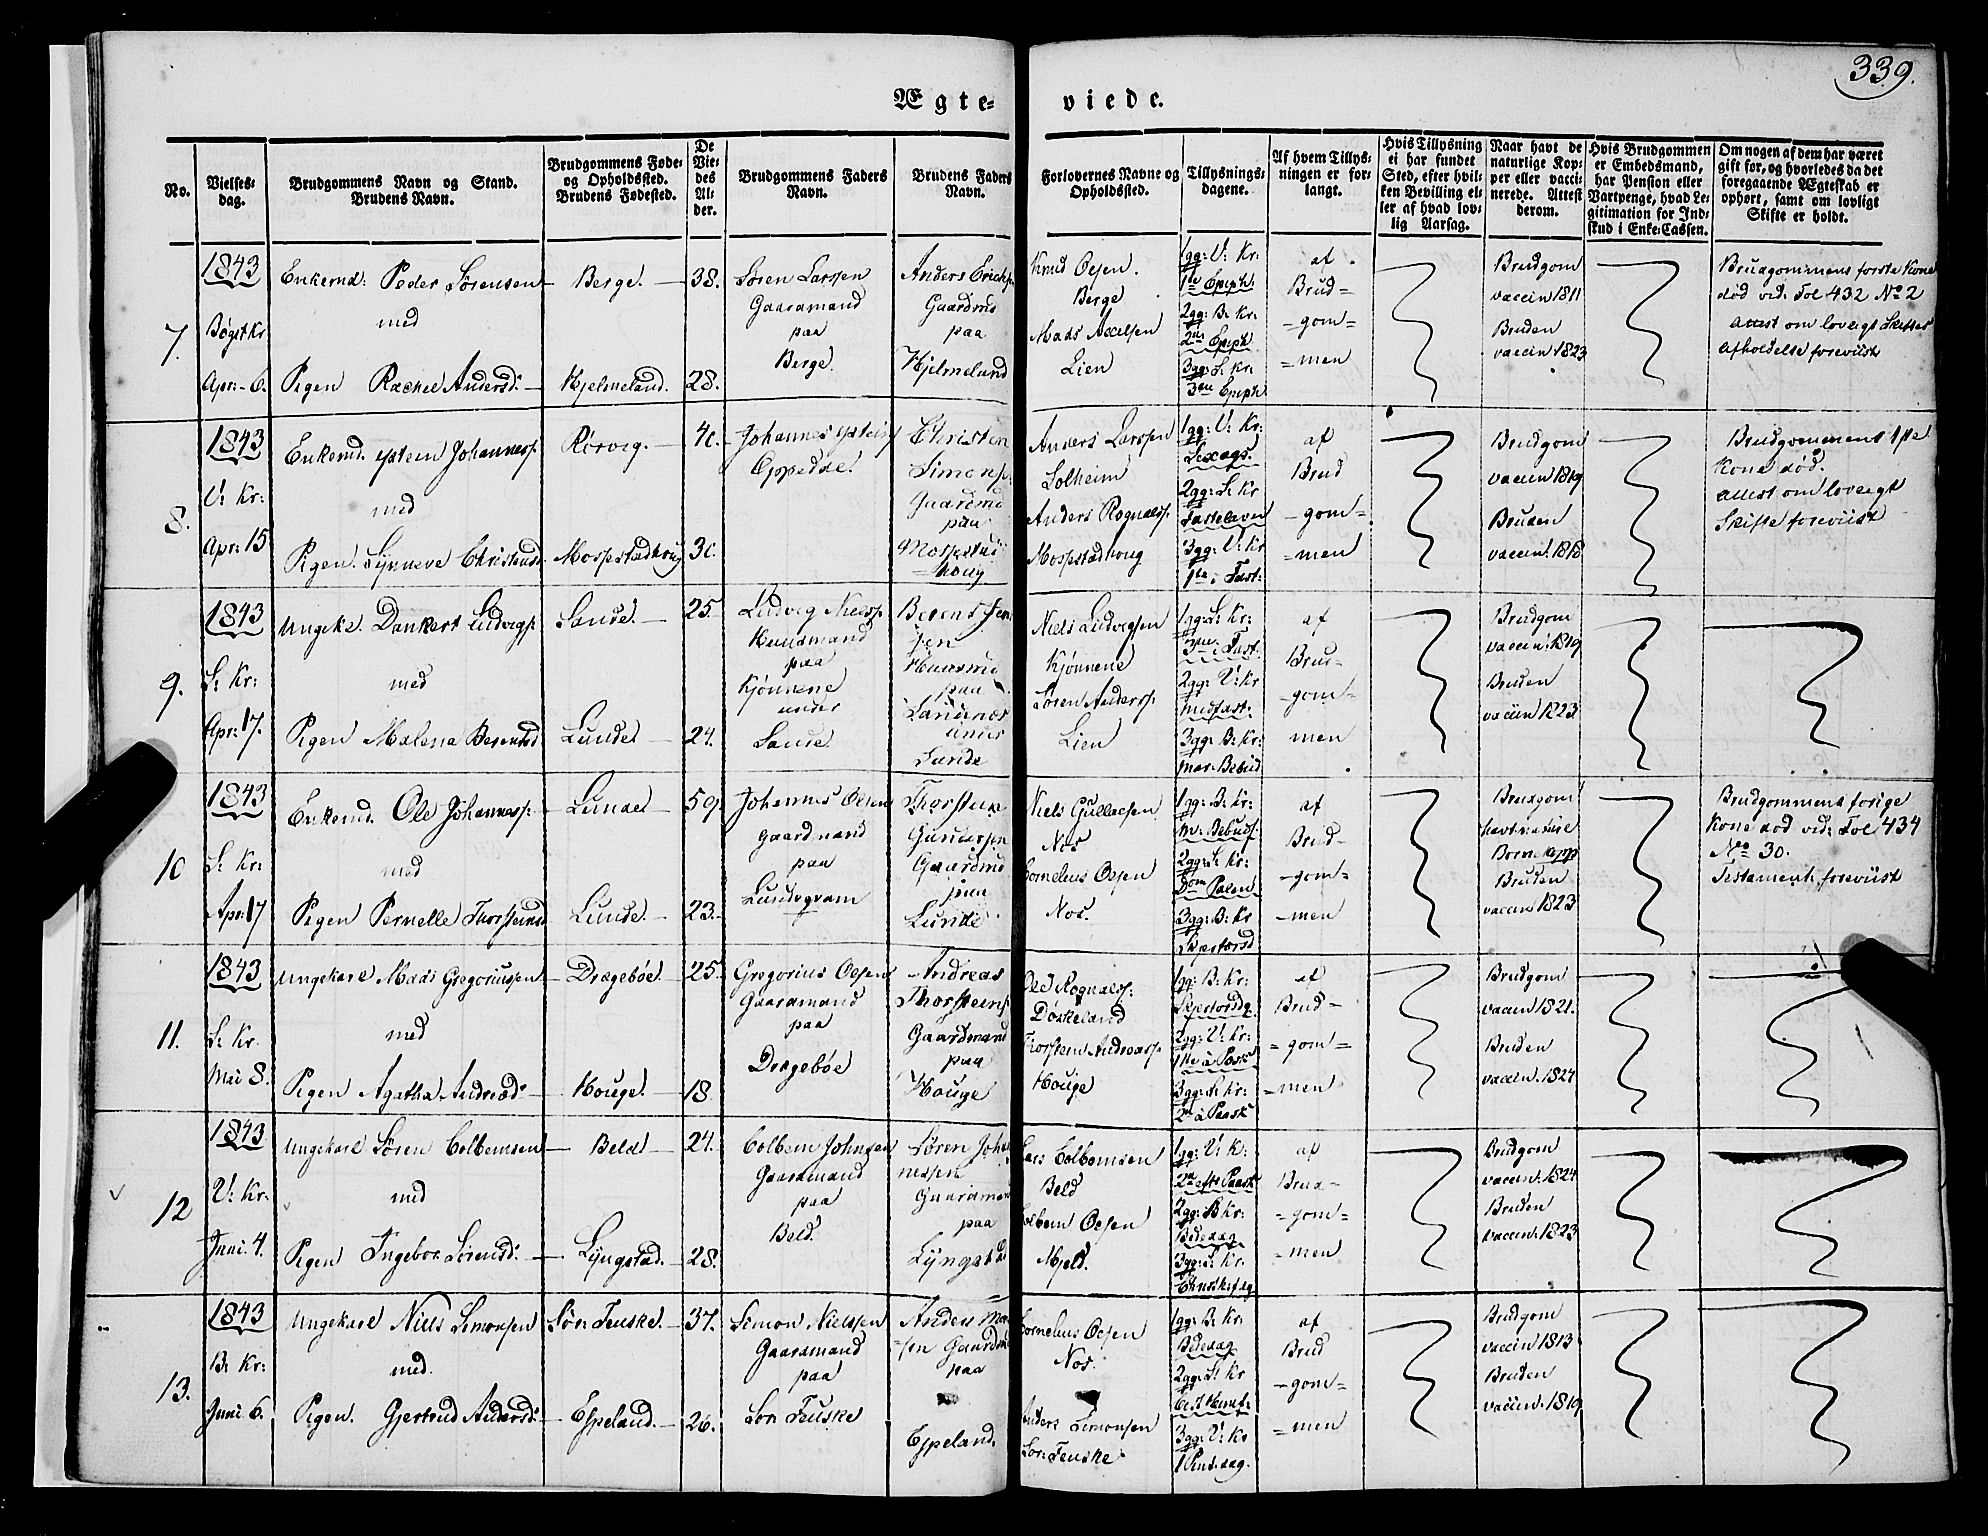 339.
Ægte- viede.
No.
Vielses-
dag.
Brudgommens Navn og Stand.
Brudens Navn.
Brudgommens Føde-
og Opholdssted.
Brudens Fødested.
De
Vie-
des
Al-
der.
Brudgommens Faders
Navn.
Brudens Faders
Navn.
Forlovernes Navne og
Opholdssted.
Tillysnings-
dagene.
Af hvem Tillys-
ningen er for-
langt.
Hvis Tillysning
ei har fundet
Sted, efter hvil-
ken Bevilling el-
ler af hvad lov-
lig Aarsag.
Naar havt de
naturlige Kop-
per eller vacci-
nerede. Attest
derom.
Hvis Brudgommen
er Embedsmand,
har Pension eller
Vartpenge, hvad Le-
gitimation for Ind-
skud i Enke-Cassen.
Om nogen af dem har været
gift før, og hvorledes da det
foregaaende Ægteskab er
ophørt, samt om lovligt
Skifte er holdt.
7.
1843
Bøgst Kr
Apr: 6.
Enkemd: Peder Sørensen
med
Pigen Rachel Andersd:
Berge.
Hjelmeland.
38.
28.
Søren Larssen
Gaardmand
paa
Berge.
Anders Ericks:
Gaardmd
paa
Hjelmeland
Knud Olsen.
Berge
Mads Accelsen
Lien
1gg: V: Kr:
1te Epiph:
2gg: B: Kr:
2den Epiph
3gg: S: Kr:
3die Epiph
af
Brud=
=gom=
=men
Brudgom
vaccin 1811
Bruden
vaccin 1823
Brudgommens første Kone
død vid: Fol 432 No 2
Attest om lovligt Skiftes
Afholdelse foreviist
8.
1843
V: Kr:
Apr: 15
Enkemd. Ystein Johanness:
med
Pigen Synneve Christensd
Rørvig.
Mospstadhoug
40.
30.
Johannes Ysteins
Oppedal
Christen
Simons:
Gaardmd
paa
Mospstad-
houg
Anders Larssen
Solheim
Anders Rognalds:
Mospstadhoug
1gg: V: Kr:
Sexags:
2gg: S: Kr
Fastelaven
3gg: V: Kr
1te i Fast:
af
Brud
=gom=
=men
Brudgom
vaccin 1819
Bruden
vaccin: 1818
Brudgommens 1ste
Kone død.
Attest om lovligt
Skifte foreviist
9.
1843
S: Kr:
Apr: 17.
Ungekl. Dankert Ludvigs:
med
Pigen Malena Berentsd
Sande.
Lunde.
25.
24.
Ludvig Niels:
Huusmand
paa
Kjønnene
under
Sande
Berent Jen-
sen
Huusmd
paa
under
Sande
Niels Ludvigsen
Kjønnene
Søren Anders:
Lien
1gg: S: Kr:
3die i Fast:
2gg: V: Kr
Midfast:
3gg: B: Kr:
Mar: Bebud
af
Brud-
-gom=
men
Brudgom
vaccin: 1819
Bruden
vaccin 1823
10
1843
S: Kr:
Apr: 17
Enkemd. Ole Johanness:
med
Pigen Pernelle Thorsteinsd
Lunde
Lunde.
59.
23.
Johannes Olsen
Gaardmand
paa
Lundegram
Thorstein
Gundersen
Gaardmd
paa
Lunde
Niels Gullacsen
Nos
Cornelius Olsen
Nos.
1gg: B: Kr:
M: Bebuds:
2gg: S: Kr
Dom: Palm
3gg: B: Kr
Skjertorsd
af
Brud-
=gom=
=men
Brudgom
havt naturl
Børnekopp
Bruden
vaccin 1823
Brudgommens forige
Kone død vid: Fol 434
No 30.
Testament foreviist
11.
1843
S: Kr.
Mai 8.
Ungekarl Mads Gregoriussen
med
Pigen Agatha Andreasd:
Drægebøe
Houge.
25.
18.
Gregorius Olsen
Gaardmand
paa
Drægebøe
Andreas
Thorsteins:
Gaardmand
paa
Houge
Ole Rognalds:
Døskeland
Thorstein Andreas:
Houge
1gg: B: Kr:
Skjertorsdg
2gg: V: Kr:
1ste à Paask
3gg: S: Kr:
2n à Paask
af
Brud-
=gom=
=men
Brudgom
vaccin 1821.
Bruden
vaccin. 1824
12
1843
V: Kr:
Juni. 4.
Ungekarl Søren Colbensen
med
Pigen Ingebor Sørensd:
Beld
Lyngstad.
24.
28.
Colben Johnsen
Gaardmand
paa
Beld.
Søren Johan-
nessen
Gaardmd
paa
Lyngstad
Lars Colbensen
Beld
Colben Olsen
Mjeld.
1gg: V: K:
2n eft: Paask
2gg: B Kr:
Bededag
3gg: S: Kr:
Christi:f:dag
af
Brud-
=gom=
=men
Brudgom
vaccin: 1824
Bruden
vaccin: 1823
13.
1843
B: Kr:
Juni 6.
Ungekarl Niels Simonsen
med.
Pigen. Gjertrud Andersd:
Sør: Feuske.
Espeland.
37.
26.
Simon Nielssen
Gaardmand
paa
Sør Feuske
Anders
=sen Gaardmd
paa
Espeland.
Cornelius Olsen
Nos.
Anders Simonsen
Sør: Feuske
1gg: B: Kr.
Bededag
2gg: S: Kr
3gg: V: Kr
1 Pintsdag.
af
Brud
=gom=
=men
Brudgom
vaccin 1813
Bruden
vaccin. 1819